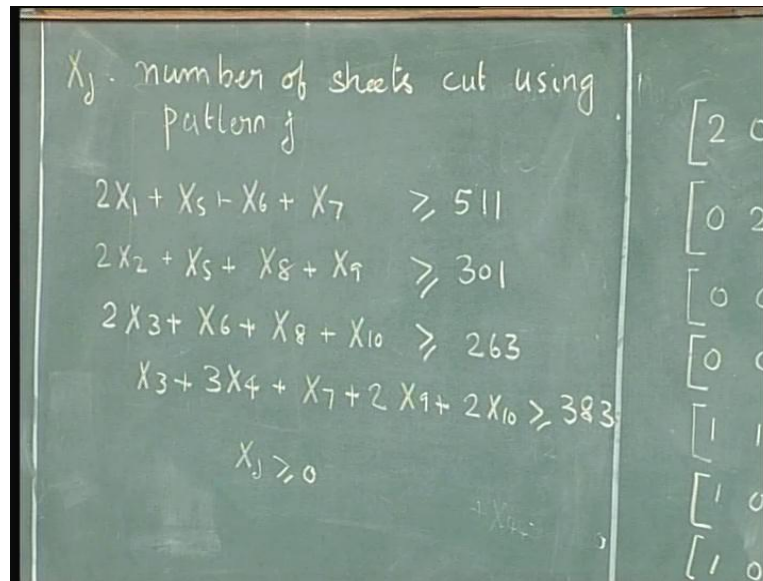 Xj . number of sheets cut using
pattern j
2X₁ + X₅ + X₆ + X₇ ≥ 511
2X₂ + X₅ + X₈ + X₉ ≥ 301
2X₃ + X₆ + X₈ + X₁₀ ≥ 263
X₃ + 3X₄ + X₇ + 2X₉ + 2X₁₀ ≥ 383
Xj ≥ 0
[2 0
[0 2
[0 0
[0 0
[1 1
[1 0
[1 0